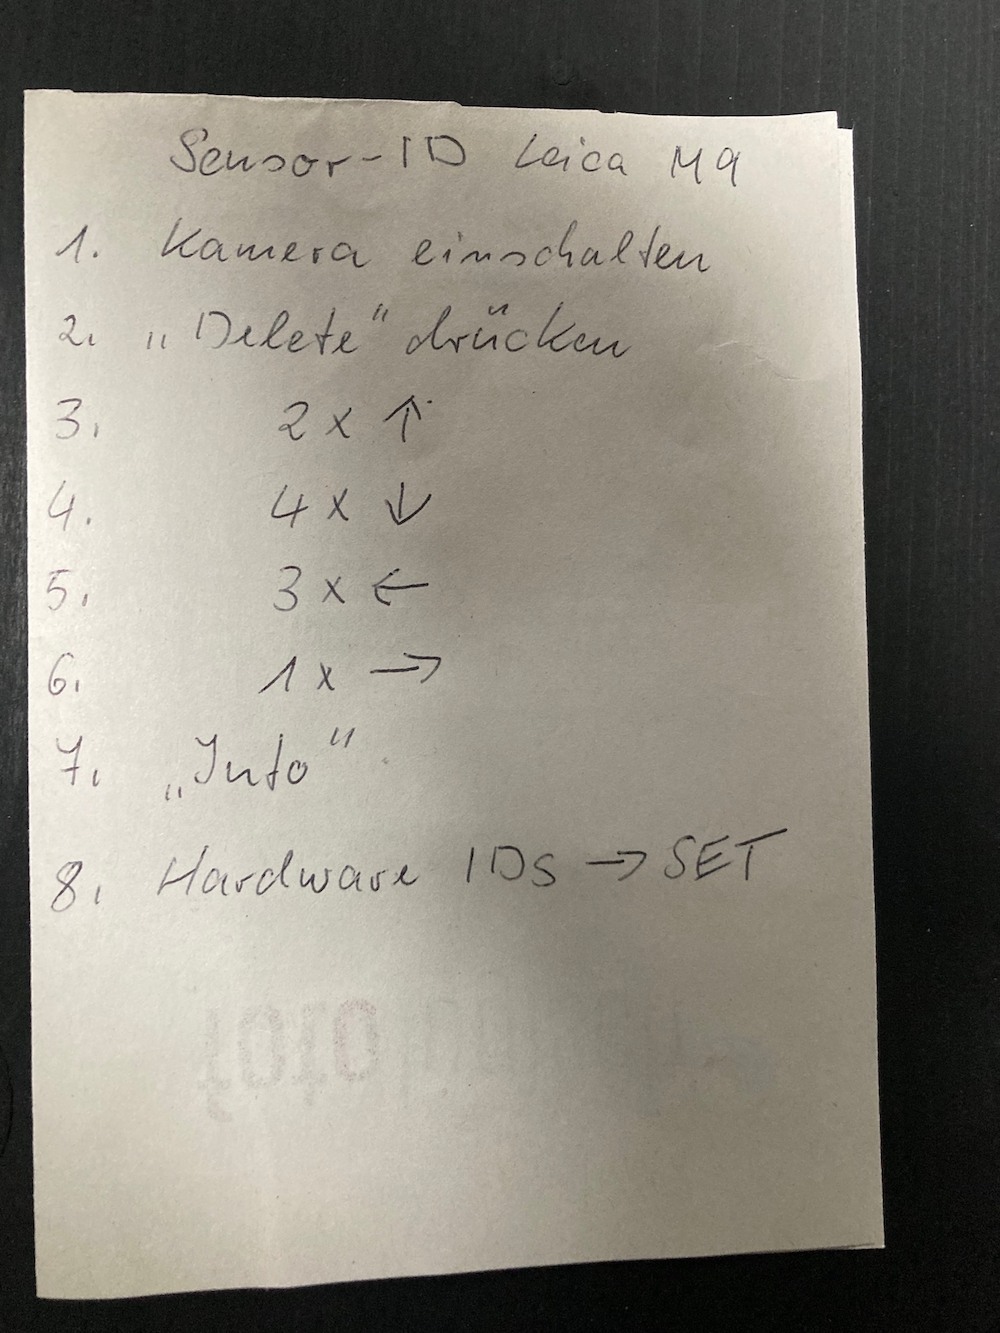 Sensor-ID Leica M9
1. Kamera einschalten
2. „Delete“ drücken
3. 2x ↑
4. 4x ↓
5. 3x ←
6. 1x →
7. „Info“
8. Hardware IDs → SET